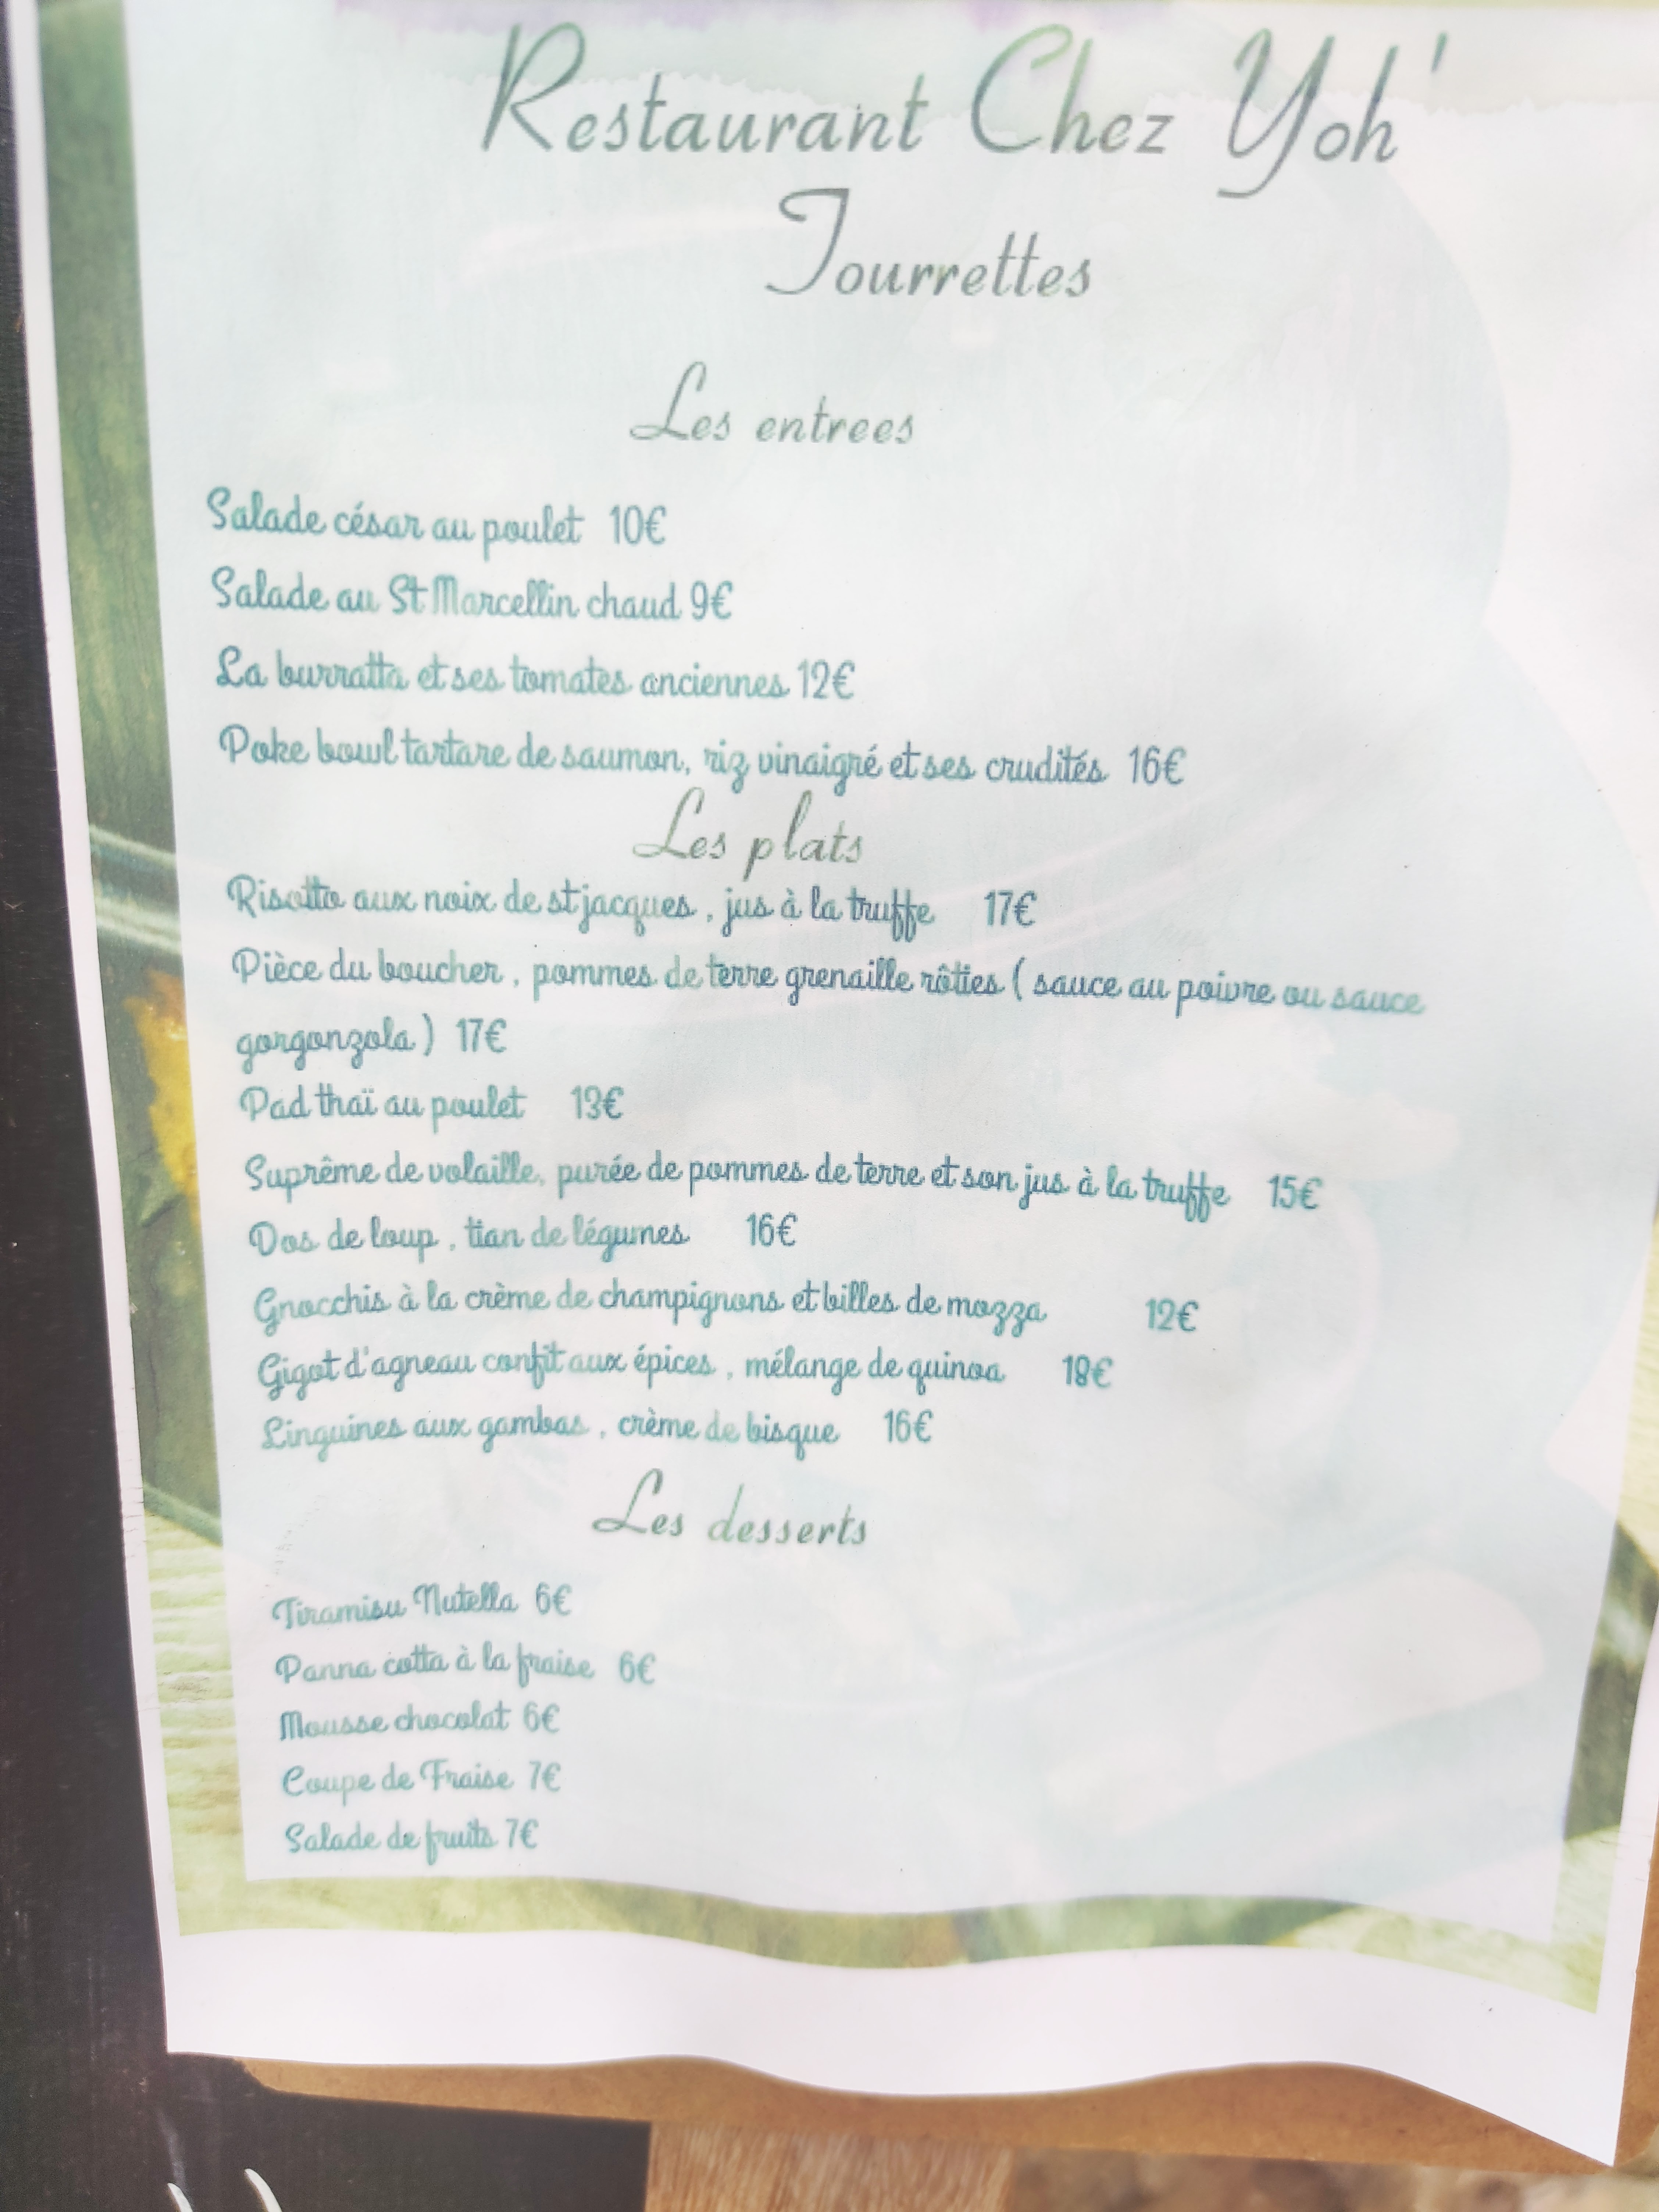 Restaurant Chez Yoh'
Tourrettes
Les entrees
Salade césar au poulet 10€
Salade au St Marcellin chaud 9€
La burratta et ses tomates anciennes 12€
Poke bowl tartare de saumon, riz vinaigré et ses crudités 16€
Les plats
Risotto aux noix de st jacques, jus à la truffe 17€
Pièce du boucher, pommes de terre grenaille rôties ( sauce au poivre ou sauce
gorgonzola ) 17€
Pad thaï au poulet 13€
Suprême de volaille, purée de pommes de terre et son jus à la truffe 15€
Dos de loup, tian de légumes 16€
Gnocchis à la crème de champignons et billes de mozza 12€
Gigot d'agneau confit aux épices, mélange de quinoa 18€
Linguines aux gambas, crème de bisque 16€
Les desserts
Tiramisu Nutella 6€
Panna cotta à la fraise 6€
Mousse chocolat 6€
Coupe de Fraise 7€
Salade de fruits 7€